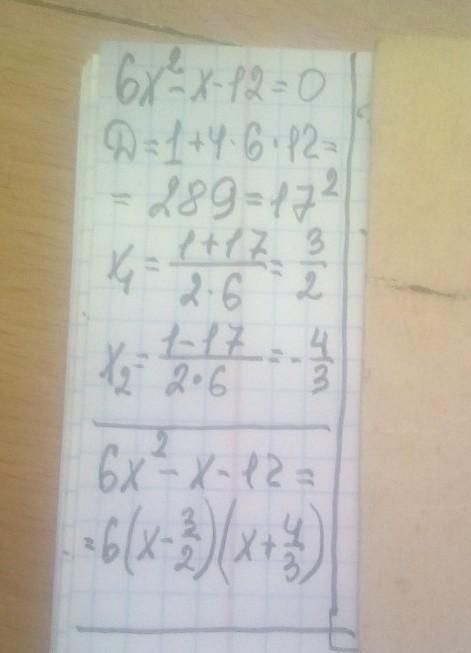 6x² - x - 12 = 0
D = 1 + 4 · 6 · 12 =
= 289 = 17²
x₁ = (1+17)/(2·6) = 3/2
x₂ = (1-17)/(2·6) = -4/3
6x² - x - 12 =
= 6(x - 3/2)(x + 4/3)